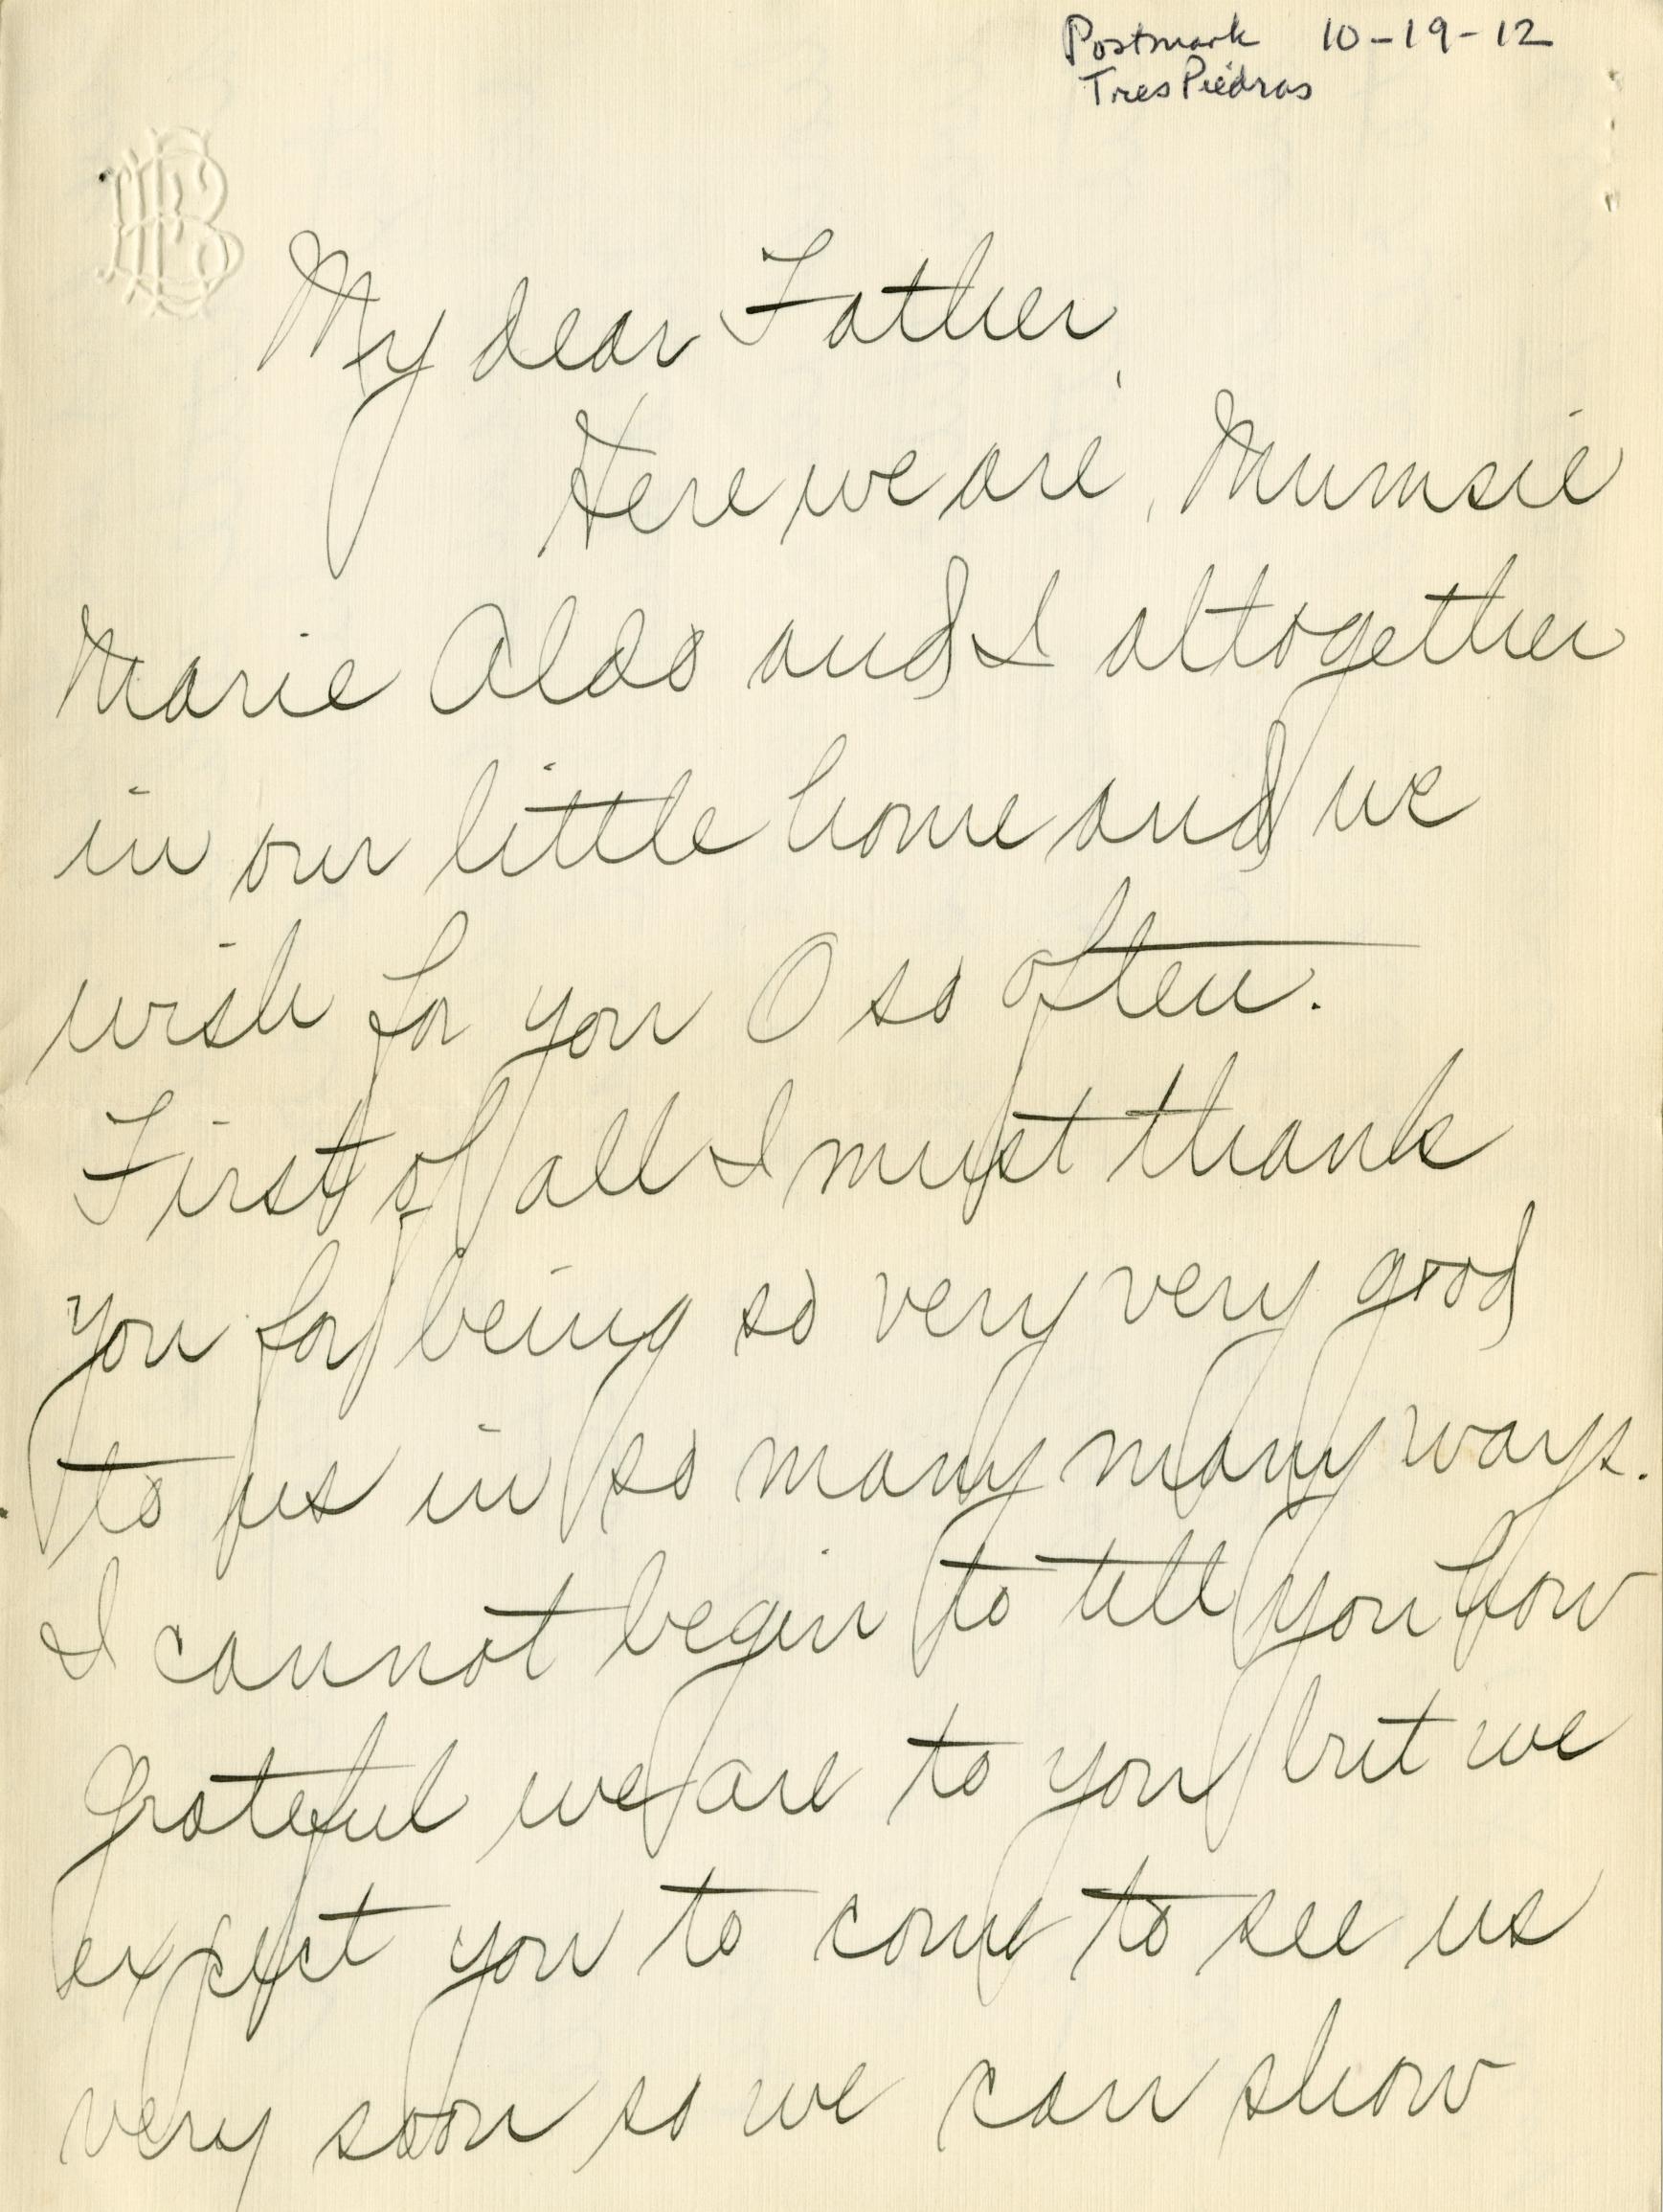 Postmark 10-19-12
Tres Piedras
My dear Father,
Here we are, Mumsie
Marie Aldo and I altogether
in our little home and we
wish for you O so often.
First of all I must thank
you for being so very very good
to us in so many many ways.
I cannot begin to tell you how
grateful we are to you but we
expect you to come to see us
very soon so we can show